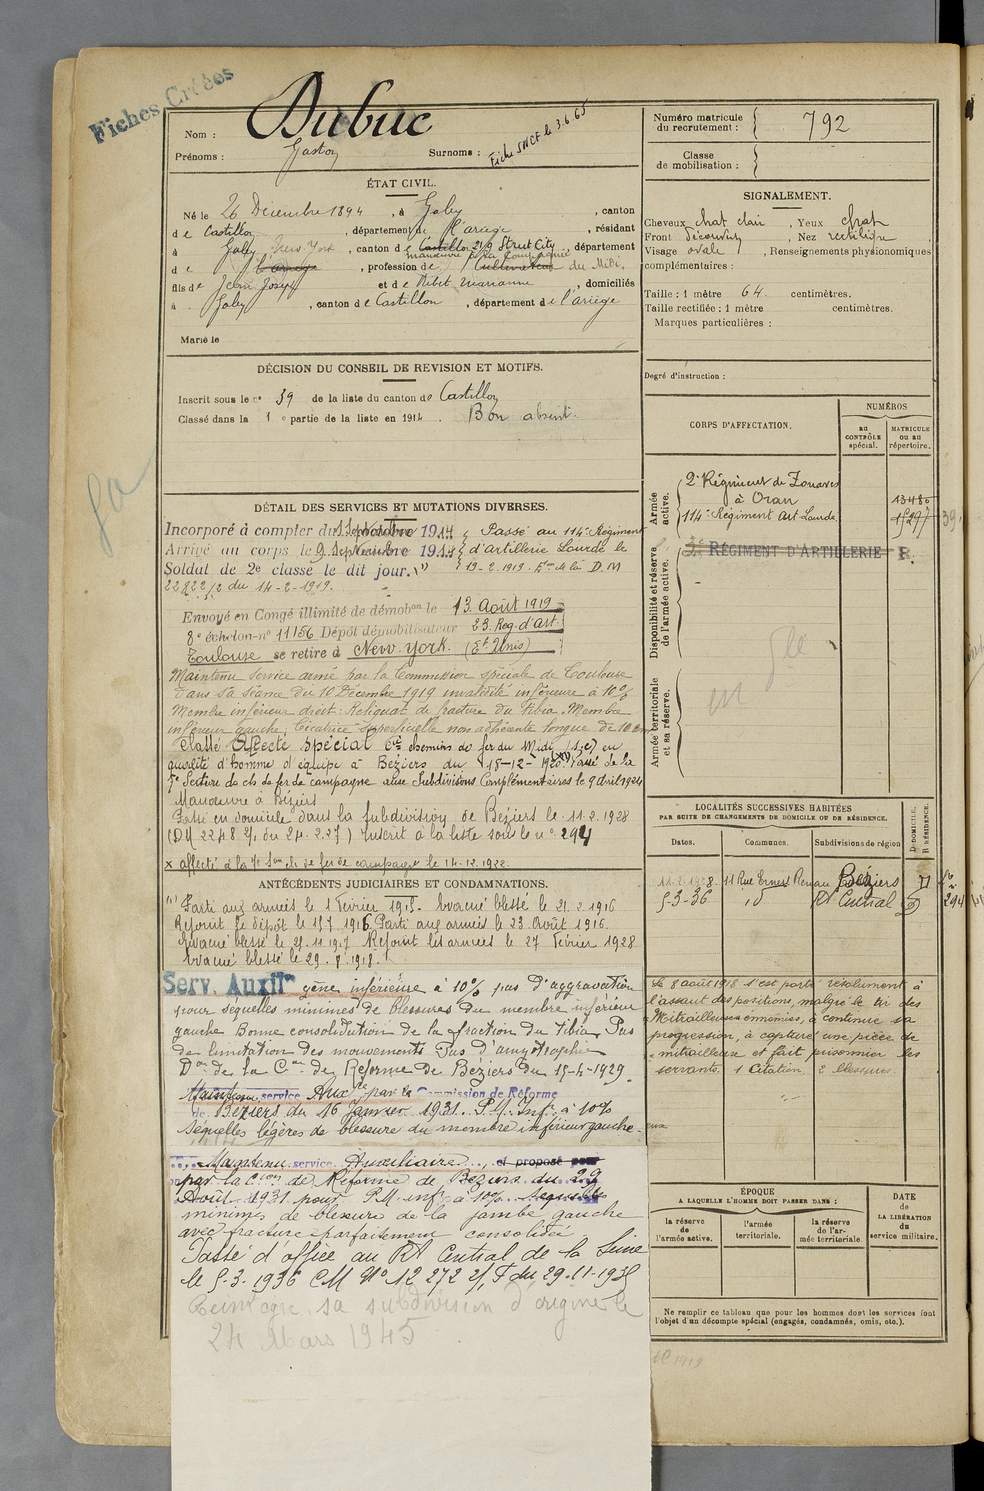 Fiches Créées
Nom : Dubuc
Prénoms : Gaston Surnoms : Fiche SNCF le 3.6.65
Numéro matricule du recrutement : 792
Classe de mobilisation :
ÉTAT CIVIL.
Né le 26 Décembre 1894, à Galey, canton
de Castillon, département de l'ariège, résidant
à Galey New-York, canton de Castillon 219 Street City, département
manœuvre à la Compagnie
de l'ariège, profession de Cultivateur du Midi,
fils de Jean Joseph et de Ribet Marianne, domiciliés
à Galey, canton de Castillon, département de l'ariège
Marié le
SIGNALEMENT.
Cheveux chat clair, Yeux chat
Front découvert, Nez rectiligne
Visage ovale, Renseignements physionomiques
complémentaires :
Taille : 1 mètre 64. centimètres.
Taille rectifiée : 1 mètre centimètres.
Marques particulières :
Degré d'instruction :
DÉCISION DU CONSEIL DE REVISION ET MOTIFS.
Inscrit sous le n° 39 de la liste du canton de Castillon
Classé dans la 1e partie de la liste en 1914. Bon absent.
DÉTAIL DES SERVICES ET MUTATIONS DIVERSES.
Incorporé à compter du 1 Septembre 1914 Passé au 114e Régiment
Arrivé au corps le 9 Septembre 1914 d'artillerie Lourde le
Soldat de 2e classe le dit jour. (1) 19-2-1919. Don de la D. M
22822 1/2 du 14-2-1919.
Envoyé en Congé illimité de démobon le 13 Août 1919
8e échelon-no 11156 Dépôt démobilisateur 23. Reg. d'art.
Toulouse se retire à New. york. (Et Unis)
Maintenu service armé par la Commission spéciale de Toulouse
dans sa séance du 10 Décembre 1919 invalidité inférieure à 10%
Membre inférieur droit : Reliquat de fracture du Tibia. Membre
inférieur gauche, Cicatrice superficielle non adhérente longue de 10 cm
Classé Affecté spécial Cie chemins de fer du Midi (S,C) en
qualité d'homme d'équipe à Béziers du 15-12-1920 (x) Passé de la
7e Section de ch. de fer de campagne aux Subdivisions Complémentaires le 9 avril 1924
Manœuvre à Béziers
Passé en domicile dans la subdivision de Béziers le 11.2.1928
(DM 2248 2/1 du 24.2.27) Inscrit à la liste sous le n° 294
x affecté à la 7e Son ch. de fer de campagne le 14.12.1922.
CORPS D'AFFECTATION.
NUMÉROS
au CONTRÔLE spécial.
MATRICULE ou au répertoire.
Armée active.
2e Régiment de Zouaves
à Oran 13480
114e Régiment Art Lourde 15297
Disponibilité et réserve de l'armée active.
RÉGIMENT D'ARTILLERIE R.
Armée territoriale et sa réserve.
LOCALITÉS SUCCESSIVES HABITÉES
PAR SUITE DE CHANGEMENTS DE DOMICILE OU DE RÉSIDENCE.
Dates. Communes. Subdivisions de région D DOMICILE. R RÉSIDENCE.
11.2.1928. 11 Rue Ernest Renan Béziers D
5-3-36 id Rt Central D 294
ANTÉCÉDENTS JUDICIAIRES ET CONDAMNATIONS.
(1) Parti aux armées le 1 Février 1915. Evacué blessé le 21.2.1916
Rejoint le dépôt le 15.7.1916 Parti aux armées le 23 Août 1916.
Evacué blessé le 21.11.1917 Rejoint les armées le 27 Février 1928
Evacué blessé le 29.8.1918.
Serv. Auxilre gêne inférieure à 10% pas d'aggravation
pour séquelles minimes de blessures du membre inférieur
gauche Bonne consolidation de la fraction du Tibia Pas
de limitation des mouvements Pas d'amyotrophie
Don de la Con de Réforme de Béziers du 15-4-1929.
Maintenu service Auxre par la Commission de Réforme
de Béziers du 16 Janvier 1931. P.I. Inf. à 10%
Séquelles légères de blessure du membre inférieur gauche.
Maintenu service Auxiliaire, et proposé pour
par la Con de Réforme de Béziers du 29
Août 1931 pour P.I. inf. à 10% Séquelles
minimes de blessure de la jambe gauche
avec fracture parfaitement consolidée
Passé d'office au Rt Central de la Seine
le 5.3.1936 CM No 12 272 2/, F du 29.11.1935
Réintégré sa subdivision d'origine le
24 Mars 1945
Le 8 août 1918 s'est porté résolument à
l'assaut des positions, malgré le tir des
Mitrailleuses ennemies, a continué sa
progression, à capturé une pièce de
mitrailleuse et fait prisonnier les
servants. 1 Citation. 2 blessures.
ÉPOQUE
A LAQUELLE L'HOMME DOIT PASSER DANS :
la réserve de l'armée active.
l'armée territoriale.
la réserve de l'armée territoriale.
DATE de LA LIBÉRATION du service militaire.
Ne remplir ce tableau que pour les hommes dont les services font
l'objet d'un décompte spécial (engagés, condamnés, omis, etc.).